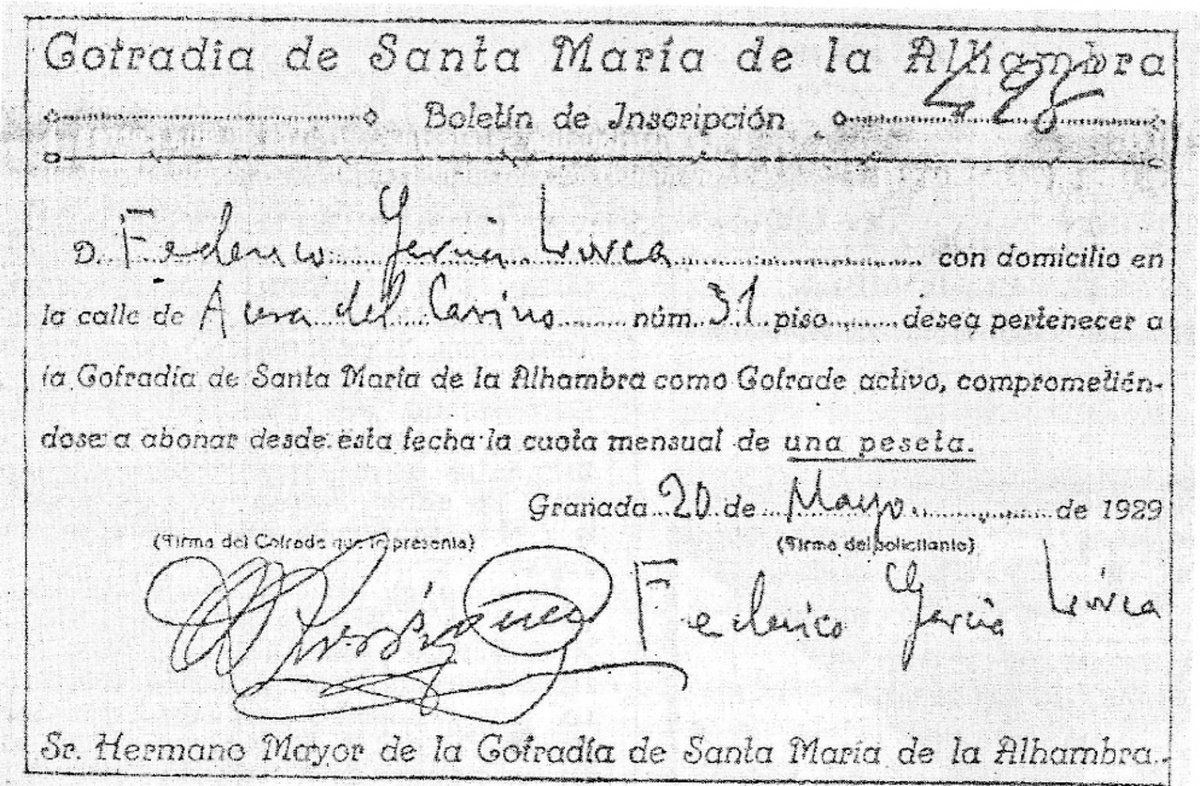 Cofradia de Santa María de la Alhambra
498
Boletín de Inscripción
D. Federico García Lorca con domicilio en
la calle de Acera del Casino núm. 31 piso deseq pertenecer a
la Cofradía de Santa María de la Alhambra como Cofrade activo, comprometién-
dose a abonar desde esta fecha la cuota mensual de una peseta.
Granada 20 de Mayo de 1929
(Firma del Cofrade que le presenta) (Firma del solicitante)
Federico García Lorca
Sr. Hermano Mayor de la Cofradía de Santa María de la Alhambra.